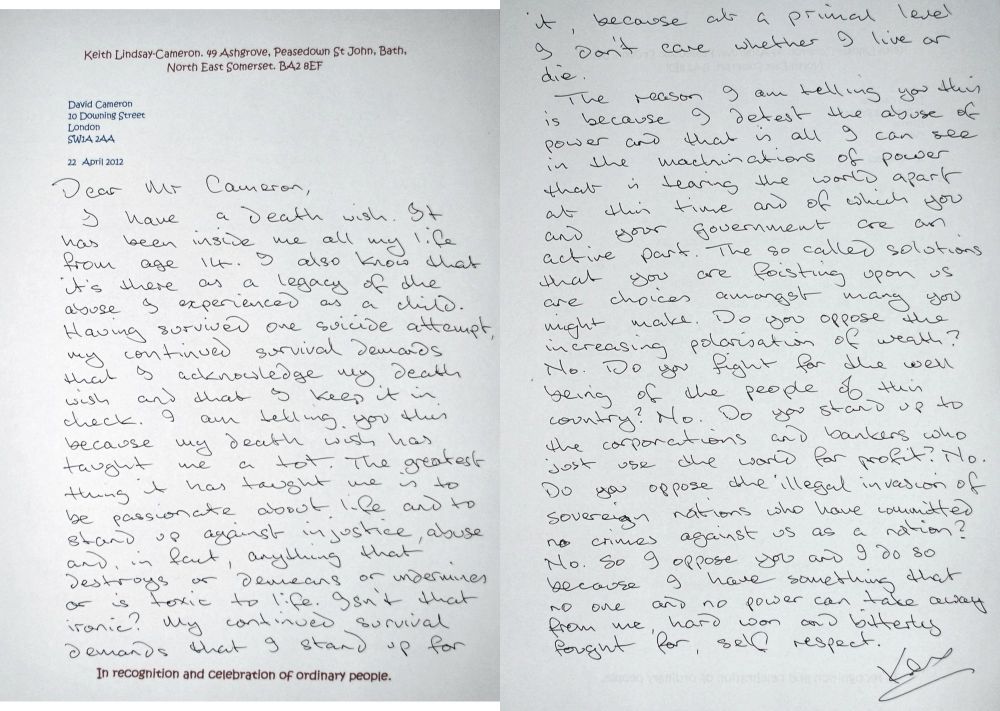 Keith Lindsay-Cameron. 49 Ashgrove, Peasedown St John, Bath,
North East Somerset. BA2 8EF
David Cameron
10 Downing Street
London
SW1A 2AA
22 April 2012
Dear Mr Cameron,
I have a death wish. It
has been inside me all my life
from age 14. I also know that
it's there as a legacy of the
abuse I experienced as a child.
Having survived one suicide attempt,
my continued survival demands
that I acknowledge my death
wish and that I keep it in
check. I am telling you this
because my death wish has
taught me a lot. The greatest
thing it has taught me is to
be passionate about life and to
stand up against injustice, abuse
and, in fact, anything that
destroys or demeans or undermines
or is toxic to life. Isn't that
ironic? My continued survival
demands that I stand up for
In recognition and celebration of ordinary people.
it, because at a primal level
I don't care whether I live or
die.
The reason I am telling you this
is because I detest the abuse of
power and that is all I can see
in the machinations of power
that is tearing the world apart
at this time and of which you
and your government are an
active part. The so called solutions
that you are foisting upon us
are choices amongst many you
might make. Do you oppose the
increasing polarisation of wealth?
No. Do you fight for the well
being of the people of this
country? No. Do you stand up to
the corporations and bankers who
just use the world for profit? No.
Do you oppose the illegal invasion of
sovereign nations who have committed
no crimes against us as a nation?
No. So I oppose you and I do so
because I have something that
no one and no power can take away
from me, hard won and bitterly
fought for, self respect.